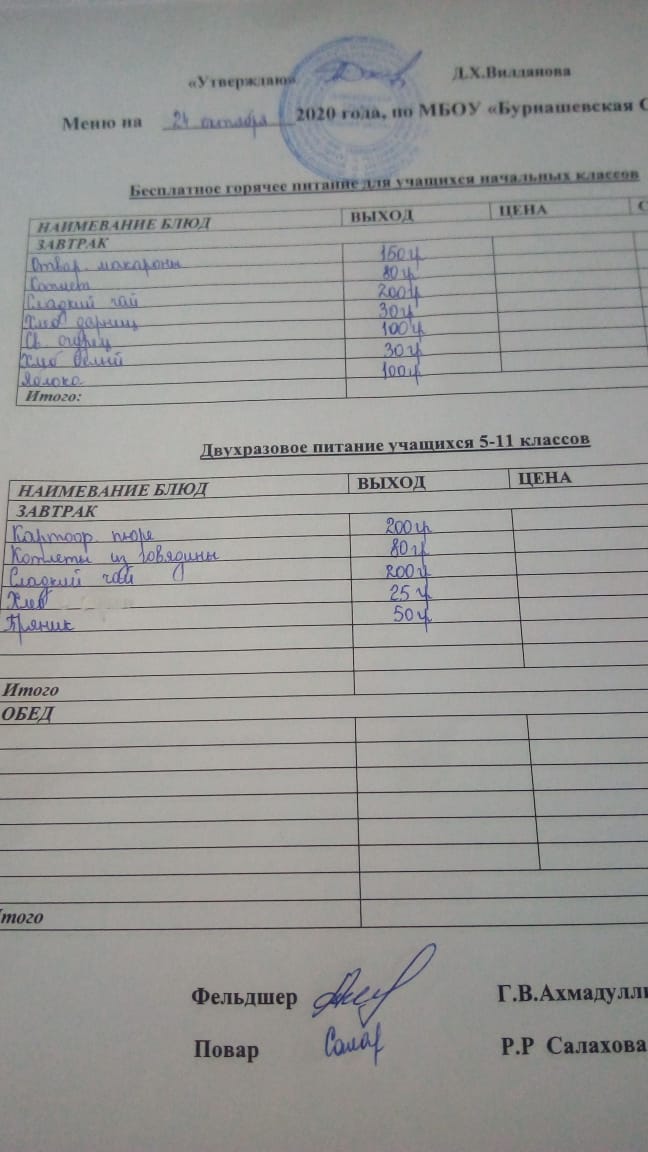 «Утверждаю» Д.Х.Вилданова
Меню на 24 октября 2020 года, по МБОУ «Бурнашевская С
Бесплатное горячее питание для учащихся начальных классов
НАИМЕВАНИЕ БЛЮД ВЫХОД ЦЕНА С
ЗАВТРАК
Отвар. макароны 150 г
80 г
Сладкий чай 200 г
Хлеб дарниц 30 г
Св. огурец 100 г
Хлеб белый 30 г
Яблоко 100 г
Итого:
Двухразовое питание учащихся 5-11 классов
НАИМЕВАНИЕ БЛЮД ВЫХОД ЦЕНА
ЗАВТРАК
Картоф. пюре 200 гр
Котлеты из говядины 80 г
Сладкий чай 200 г
Хлеб 25 г
Пряник 50 г
Итого
ОБЕД
Итого
Фельдшер Г.В.Ахмадулли
Повар Салах Р.Р Салахова